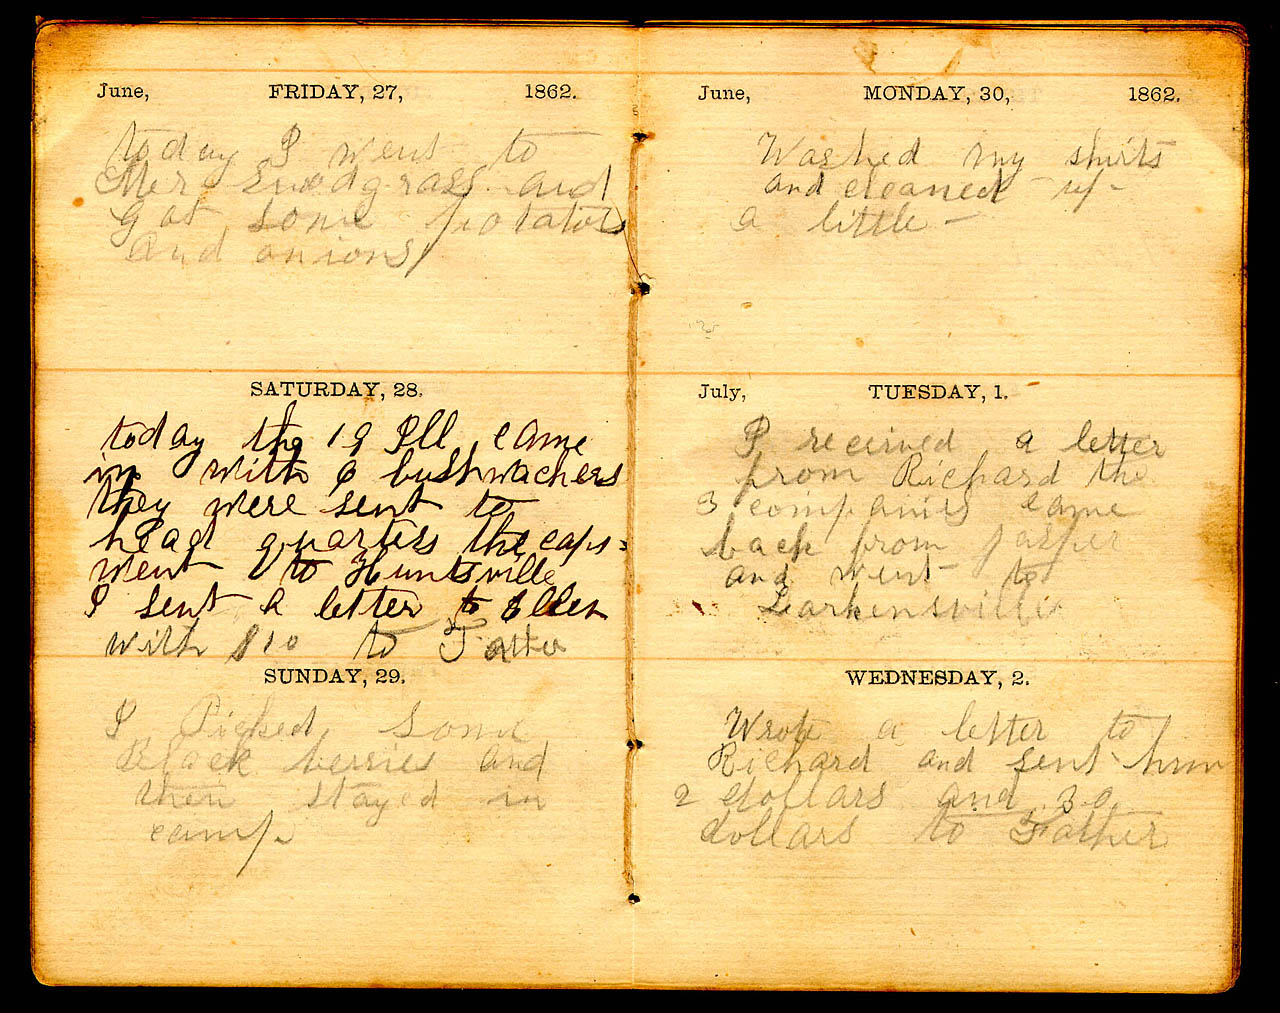 June, FRIDAY, 27, 1862.
today I went to
Mer Snodgrass and
Got some potatos
And onions
SATURDAY, 28.
today the 19 Ill came
in with 9 bushwachers
they were sent to
head quarters the caps
went to Huntsville
I sent a letter to Ellen
with $10 to Father
SUNDAY, 29.
I Picked some
Black berries and
then stayed in
camp
June, MONDAY, 30, 1862.
Washed my shirts
and cleaned up
a little -
July, TUESDAY, 1.
I received a letter
from Richard the
3 companies came
back from jasper
and went to
Larkensville
WEDNESDAY, 2.
Wrote a letter to
Richard and sent him
2 dollars and 30
dollars to Father